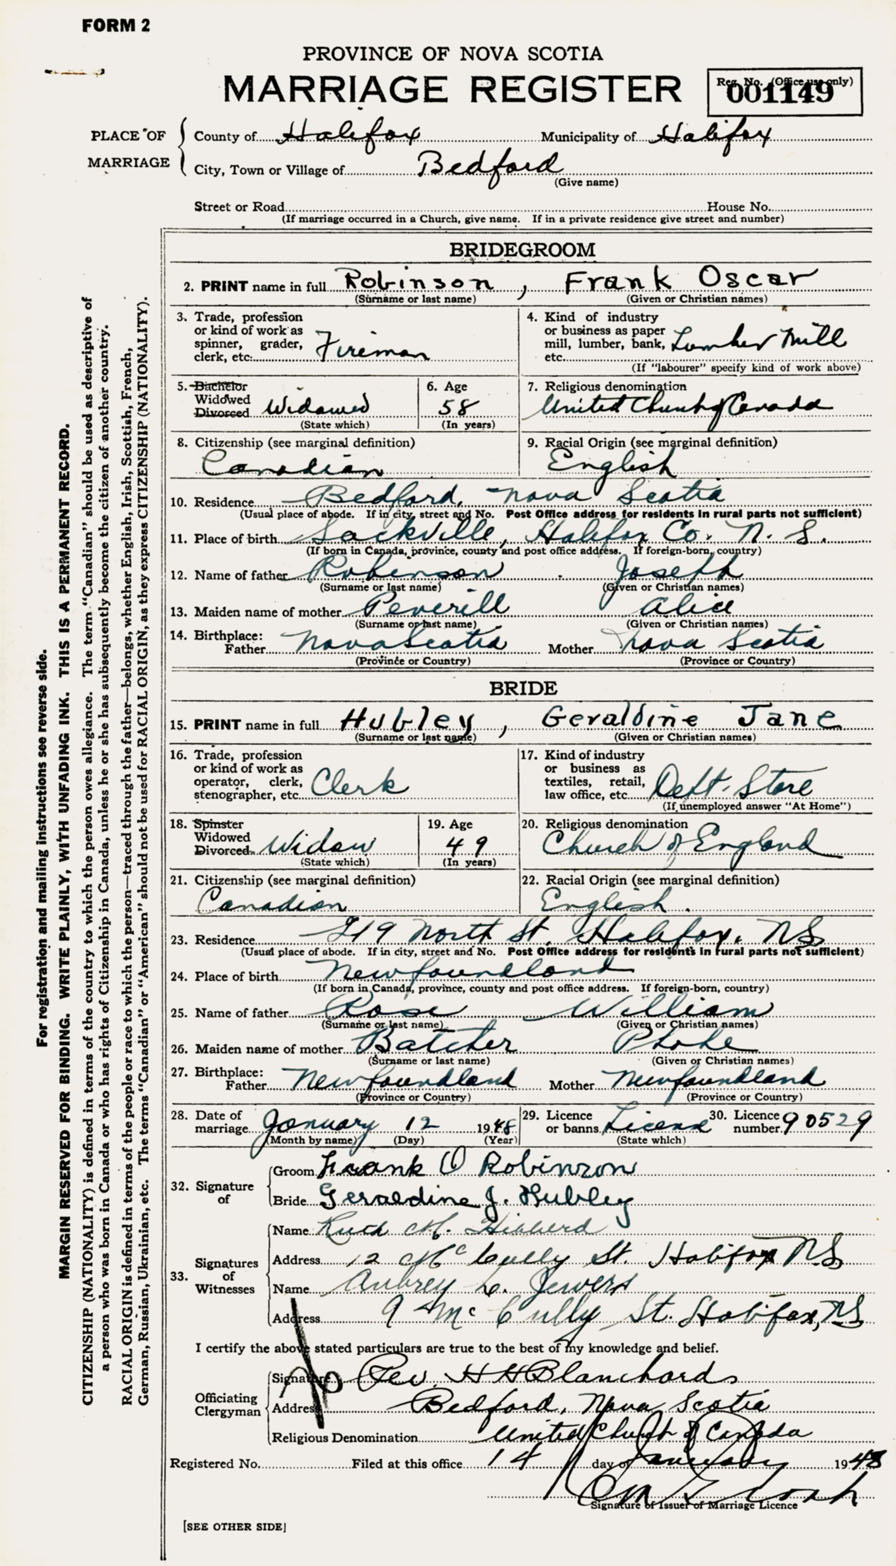 FORM 2
PROVINCE OF NOVA SCOTIA
MARRIAGE REGISTER
Reg. No. (Office use only)
001149
PLACE OF MARRIAGE
County of Halifax Municipality of Halifax
City, Town or Village of Bedford
(Give name)
Street or Road House No.
(If marriage occurred in a Church, give name. If in a private residence give street and number)
BRIDEGROOM
2. PRINT name in full Robinson, Frank Oscar
(Surname or last name) (Given or Christian names)
3. Trade, profession
or kind of work as
spinner, grader,
clerk, etc. Fireman
4. Kind of industry
or business as paper
mill, lumber, bank,
etc. Lumber Mill
(If "labourer" specify kind of work above)
5. Bachelor
Widowed
Divorced Widowed
(State which)
6. Age
58
(In years)
7. Religious denomination
United Church of Canada
8. Citizenship (see marginal definition)
Canadian
9. Racial Origin (see marginal definition)
English
10. Residence Bedford, Nova Scotia
(Usual place of abode. If in city, street and No. Post Office address for residents in rural parts not sufficient)
11. Place of birth Sackville, Halifax Co. N. S.
(If born in Canada, province, county and post office address. If foreign-born, country)
12. Name of father Robinson Joseph
(Surname or last name) (Given or Christian names)
13. Maiden name of mother Peverill Alice
(Surname or last name) (Given or Christian names)
14. Birthplace:
Father Nova Scotia Mother Nova Scotia
(Province or Country) (Province or Country)
BRIDE
15. PRINT name in full Hubley, Geraldine Jane
(Surname or last name) (Given or Christian names)
16. Trade, profession
or kind of work as
operator, clerk,
stenographer, etc. Clerk
17. Kind of industry
or business as
textiles, retail,
law office, etc. Dept. Store
(If unemployed answer "At Home")
18. Spinster
Widowed
Divorced Widow
(State which)
19. Age
49
(In years)
20. Religious denomination
Church of England
21. Citizenship (see marginal definition)
Canadian
22. Racial Origin (see marginal definition)
English.
23. Residence 219 North St. Halifax, NS
(Usual place of abode. If in city, street and No. Post Office address for residents in rural parts not sufficient)
24. Place of birth Newfoundland
(If born in Canada, province, county and post office address. If foreign-born, country)
25. Name of father Rose William
(Surname or last name) (Given or Christian names)
26. Maiden name of mother Batcher Phobe
(Surname or last name) (Given or Christian names)
27. Birthplace:
Father Newfoundland Mother Newfoundland
(Province or Country) (Province or Country)
28. Date of
marriage. January 12 1948
(Month by name) (Day) (Year)
29. Licence
or banns License
(State which)
30. Licence
number. 90529
32. Signature of
Groom Frank O Robinson
Bride Geraldine J. Hubley
33. Signatures of Witnesses
Name Ruth M. Hibberd
Address 12 McCully St. Halifax NS
Name Aubrey C. Jewers
Address 9 McCully St. Halifax, NS
I certify the above stated particulars are true to the best of my knowledge and belief.
Officiating Clergyman
Signature Rev. H H Blanchard
Address Bedford, Nova Scotia
Religious Denomination United Church of Canada
Registered No. Filed at this office 14 day of January 1948
Signature of Issuer of Marriage Licence
[SEE OTHER SIDE]
For registration and mailing instructions see reverse side.
MARGIN RESERVED FOR BINDING. WRITE PLAINLY, WITH UNFADING INK. THIS IS A PERMANENT RECORD.
CITIZENSHIP (NATIONALITY) is defined in terms of the country to which the person owes allegiance. The term "Canadian" should be used as descriptive of
a person who was born in Canada or who has rights of Citizenship in Canada, unless he or she has subsequently become the citizen of another country.
RACIAL ORIGIN is defined in terms of the people or race to which the person—traced through the father—belongs, whether English, Irish, Scottish, French,
German, Russian, Ukrainian, etc. The terms "Canadian" or "American" should not be used for RACIAL ORIGIN, as they express CITIZENSHIP (NATIONALITY).